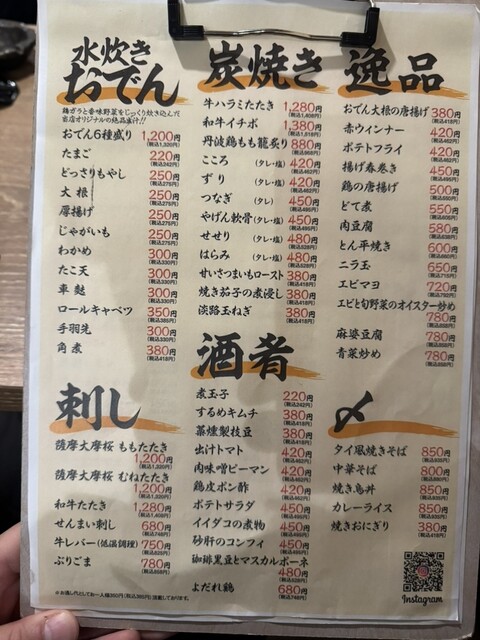 水炊き
おでん
鶏ガラと香味野菜をじっくり炊き込んだ
当店オリジナルの絶品薬汁!!
おでん6種盛り 1,200円 (税込1,320円)
たまご 220円 (税込242円)
どっさりもやし 250円 (税込275円)
大根 250円 (税込275円)
厚揚げ 250円 (税込275円)
じゃがいも 250円 (税込275円)
わかめ 300円 (税込330円)
たこ天 300円 (税込330円)
車麩 300円 (税込330円)
ロールキャベツ 350円 (税込385円)
手羽先 300円 (税込330円)
角煮 380円 (税込418円)
刺し
薩摩大摩桜 ももたたき
1,200円 (税込1,320円)
薩摩大摩桜 むねたたき
1,200円 (税込1,320円)
和牛たたき 1,280円 (税込1,408円)
せんまい刺し 680円 (税込748円)
牛レバー(低温調理) 750円 (税込825円)
ぶりごま 780円 (税込858円)
炭焼き
牛ハラミたたき 1,280円 (税込1,408円)
和牛イチボ 1,380円 (税込1,518円)
丹波鶏もも籠炙り 880円 (税込968円)
こころ (タレ・塩) 420円 (税込462円)
ずり (タレ・塩) 420円 (税込462円)
つなぎ (タレ・塩) 450円 (税込495円)
やげん軟骨 (タレ・塩) 450円 (税込495円)
せせり (タレ・塩) 480円 (税込528円)
はらみ (タレ・塩) 480円 (税込528円)
甘いさつまいもロースト 380円 (税込418円)
焼き茄子の煮浸し 380円 (税込418円)
淡路玉ねぎ 380円 (税込418円)
酒肴
煮玉子 220円 (税込242円)
するめキムチ 380円 (税込418円)
藁燻製枝豆 380円 (税込418円)
出汁トマト 420円 (税込462円)
肉味噌ピーマン 420円 (税込462円)
鶏皮ポン酢 420円 (税込462円)
ポテトサラダ 450円 (税込495円)
イイダコの煮物 450円 (税込495円)
砂肝のコンフィ 450円 (税込495円)
珈琲黒豆とマスカルポーネ
480円 (税込528円)
よだれ鶏 680円 (税込748円)
逸品
おでん大根の唐揚げ 380円 (税込418円)
赤ウィンナー 420円 (税込462円)
ポテトフライ 420円 (税込462円)
揚げ春巻き 450円 (税込495円)
鶏の唐揚げ 500円 (税込550円)
どて煮 550円 (税込605円)
肉豆腐 580円 (税込638円)
とん平焼き 600円 (税込660円)
ニラ玉 650円 (税込715円)
エビマヨ 720円 (税込792円)
エビと旬野菜のオイスター炒め
780円 (税込858円)
麻婆豆腐 780円 (税込858円)
青菜炒め 780円 (税込858円)
〆
タイ風焼きそば 850円 (税込935円)
中華そば 800円 (税込880円)
焼き鳥丼 850円 (税込935円)
カレーライス 850円 (税込935円)
焼きおにぎり 380円 (税込418円)
Instagram
※お通し代としてお一人様350円(税込385円)頂戴しております。